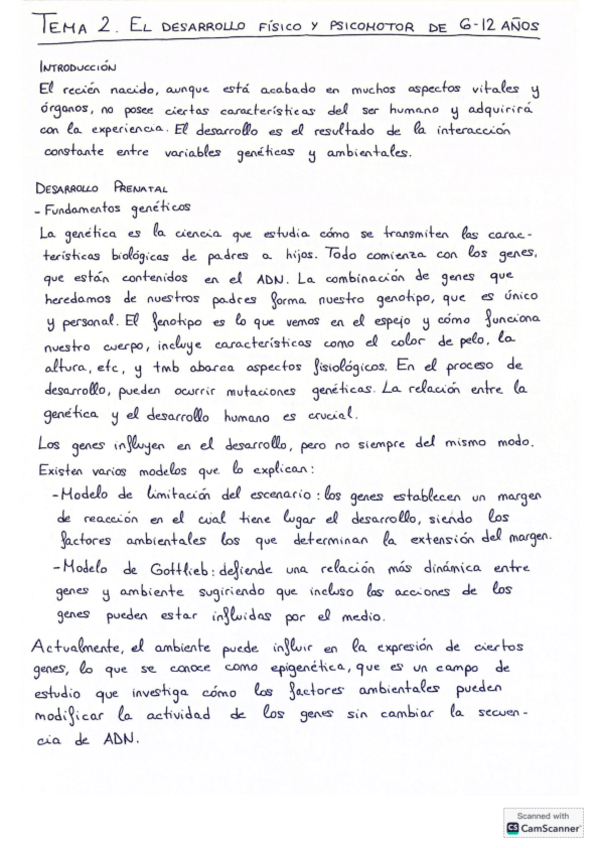 TEMA 2. EL DESARROLLO FÍSICO Y PSICOMOTOR DE 6-12 AÑOS
INTRODUCCIÓN
El recién nacido, aunque está acabado en muchos aspectos vitales y
órganos, no posee ciertas características del ser humano y adquirirá
con la experiencia. El desarrollo es el resultado de la interacción
constante entre variables genéticas y ambientales.
DESARROLLO PRENATAL
- Fundamentos genéticos
La genética es la ciencia que estudia cómo se transmiten las carac-
terísticas biológicas de padres a hijos. Todo comienza con los genes,
que están contenidos en el ADN. La combinación de genes que
heredamos de nuestros padres forma nuestro genotipo, que es único
y personal. El fenotipo es lo que vemos en el espejo y cómo funciona
nuestro cuerpo, incluye características como el color de pelo, la
altura, etc, y tmb abarca aspectos fisiológicos. En el proceso de
desarrollo, pueden ocurrir mutaciones genéticas. La relación entre la
genética y el desarrollo humano es crucial.
Los genes influyen en el desarrollo, pero no siempre del mismo modo.
Existen varios modelos que lo explican:
- Modelo de limitación del escenario: los genes establecen un margen
de reacción en el cual tiene lugar el desarrollo, siendo los
factores ambientales los que determinan la extensión del margen.
- Modelo de Gottlieb: defiende una relación más dinámica entre
genes y ambiente sugiriendo que incluso las acciones de los
genes pueden estar influidas por el medio.
Actualmente, el ambiente puede influir en la expresión de ciertos
genes, lo que se conoce como epigenética, que es un campo de
estudio que investiga cómo los factores ambientales pueden
modificar la actividad de los genes sin cambiar la secuen-
cia de ADN.
Scanned with
CS CamScanner